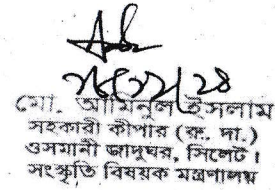 ২৬/১২/২৪
মো. আমিনুল ইসলাম
সহকারী কীপার (রু. দা.)
ওসমানী জাদুঘর, সিলেট।
সংস্কৃতি বিষয়ক মন্ত্রণালয়